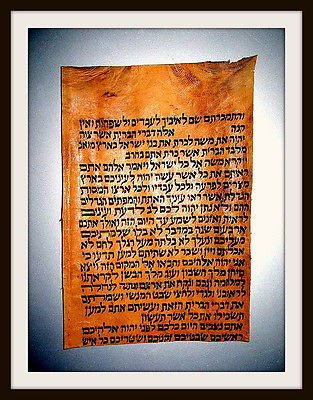 והתמכרתם שם לאיביך לעבדים ולשפחות ואין
קנה אלה דברי הברית אשר צוה
יהוה את משה לכרת את בני ישראל בארץ מואב
מלבד הברית אשר כרת אתם בחרב
ויקרא משה אל כל ישראל ויאמר אלהם אתם
ראיתם את כל אשר עשה יהוה לעיניכם בארץ
מצרים לפרעה ולכל עבדיו ולכל ארצו המסות
הגדלת אשר ראו עיניך האתת והמפתים הגדלים
ההם ולא נתן יהוה לכם לב לדעת ועינים
לראות ואזנים לשמע עד היום הזה ואולך אתכם
ארבעים שנה במדבר לא בלו שלמתיכם
מעליכם ונעלך לא בלתה מעל רגלך לחם לא
אכלתם ויין ושכר לא שתיתם למען תדעו כי
אני יהוה אלהיכם ותבאו אל המקום הזה ויצא
סיחן מלך חשבון ועוג מלך הבשן לקראתנו
למלחמה ונכם ונקח את ארצם ונתנה לנחלה
לראובני ולגדי ולחצי שבט המנשי ושמרתם
את דברי הברית הזאת ועשיתם אתם למען
תשכילו את כל אשר תעשון
אתם נצבים היום כלכם לפני יהוה אלהיכם
ראשיכם שבטיכם זקניכם ושטריכם כל איש